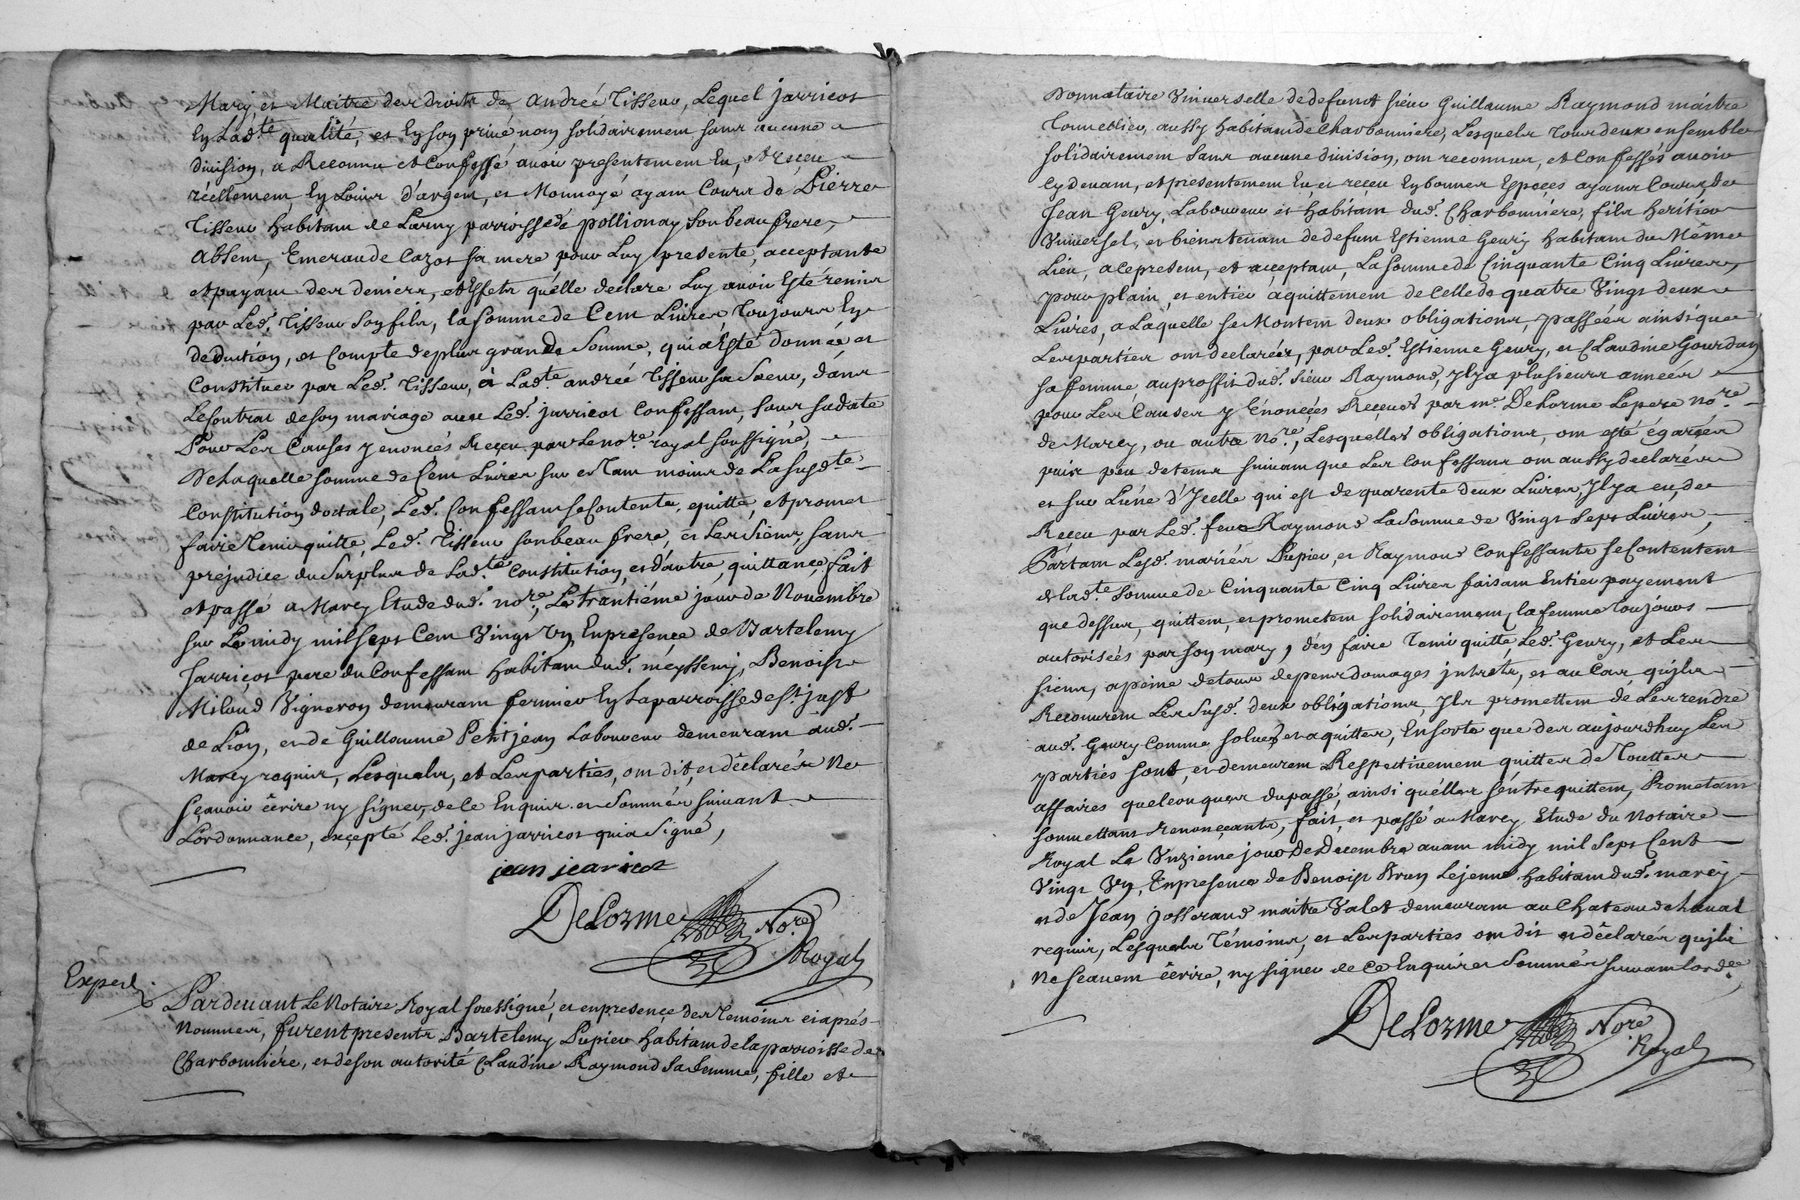 Mary et Maitre des droits de andreé Tisseur, Lequel jarricot
En Lad.te qualité, et En son privé nom solidairement sans aucune
division, a Reconnu et Confessé avoir presentement Eu, et reçeu
réellement En Loüis d'argent, et Monnoyé ayant Cours de Pierre
Tisseur habitant de Larny parroisse de pollionay son beau frere,
Absent, Emeraude Cazot sa mere pour Luy presente, acceptante
et payant des deniers, et Effets qu'elle declare Luy avoir Esté remis
par Led. Tisseur son fils, la somme de Cent Livres Toujours En
deduction, et Compte de plus grande Somme, qui a Esté donnée et
Constituée par Led. Tisseur, à Lad.te andrée Tisseur sa Soeur, dans
Le Contrat de son mariage avec Led. jarricot Confessant, sous sa date
Pour Les Causes y enoncés Reçeu par Le no.re royal soussigné,
De Laquelle somme de Cent Livres sur et Tant moins de La susd.te
Constitution dotale, Led. Confessant se Contente, quitte, et promet
faire Tenir quitte, Led. Tisseur son beau frere, et Les Siens, sans
prejudice du Surplus de Lad.te Constitution, et d'autre, quittance, fait
et passé a Marcy Etude dud. no.re, Le trantiéme jour de Novembre
sur Le midy mil sept Cent Vingt Un, En présence de Bartelemy
Jarricot pere du Confessant habitant dud. meyssemy, Benoist
Milaud Vigneron demeurant fermier En La parroisse de S.t just
de Lion, et de Guillaume Petitjean Laboureur demeurant aud.
Marcy requis, Lesquels, et Les parties, ont dit, et déclarés Ne
sçavoir écrire ny signer, de Ce Enquis et Sommés suivant
L'ordonnance, excepté Led. jean jarricot qui a Signé,
jean jearricot
DeLorme No.re
Royal
Exped.
Pardevant Le Notaire Royal soussigné, et en presençe des Temoins ci aprés
Nommés, furent presents Bartelemy Pupier habitant de la parroisse de
Charbonniére, et de son autorité Claudine Raymond Sa femme, fille et
Donnataire Universelle de defunct Sieur Guillaume Raymond maistre
Tonnellier, aussy habitant de Charbonniere, Lesquels Tous deux ensemble
solidairement Sans aucune division, ont reconnus, et Confessés avoir
Cy devant, et presentement Eu et reçeu En bonnes Espeçes ayants Cours, de
Jean Geury, Laboureur et habitant dud. Charbonniére, fils heritier
Universel, et bientenant de defunt Estienne Geury habitant du Même
Lieu, a Ce present, et acçeptant, La Somme de Cinquante Cinq Livres,
pour plain, et entier aquittement de Celle de quatre Vingt deux
Livres, a Laquelle se Montent deux obligations, passées ainsi que
Les parties ont declarées, par Led. Estienne Geury, et Claudine Gourdan
sa femme, au proffit dud. Sieur Raymond, Il y a plusieurs années
pour Les Causes y Enoncées Recues par m.e DeLorme Le pere no.re
de Marcy, ou autre No.re, Lesquelles obligations, ont esté égarées
puis peu de tems suivant que Les Confessans ont aussy declarés
et sur L'une d'Icelle qui est de quarente deux Livres, Il y a eu, de
Reçeu par Led. feu Raymond La Somme de Vingt Sept Livres,
Partant Lesd. mariés Pupier, et Raymond Confessants se Contentent
de lad.te Somme de Cinquante Cinq Livres faisant Entier payement
que dessus, quittent, et promettent solidairement, la femme Toujours
autorisées par son mary, d'en faire Tenir quitte, Led. Geury, et Les
siens, a peine de tous depens domages intrets, et au Cas qu'ils
Recouvrent Les Susd. deux obligations, Ils promettent de Les rendre
aud. Geury Comme solues et aquittes, En sorte que des aujourdhuy Les
parties sont, et demeurent Respectivement quittes de Touttes
affaires quelconques du passé, ainsi qu'elles s'entrequittent, Promettans
soumettans renonçants, fait, et passé a Marcy Etude du Notaire
Royal Le Unzieme jour de Decembre avant midy mil Sept Cent
Vingt Un, En presence de Benoist Brun Le jeune habitant dud. marcy
et de Jean josserand maitre Valet demeurant au Chateau de Laval
requis, Lesquels Témoins, et Les parties ont dit et déclarés qu'ils
Ne sçavent écrire, ny signer de Ce Enquis et Sommés suivant l'ord.ce
DeLorme No.re
Royal